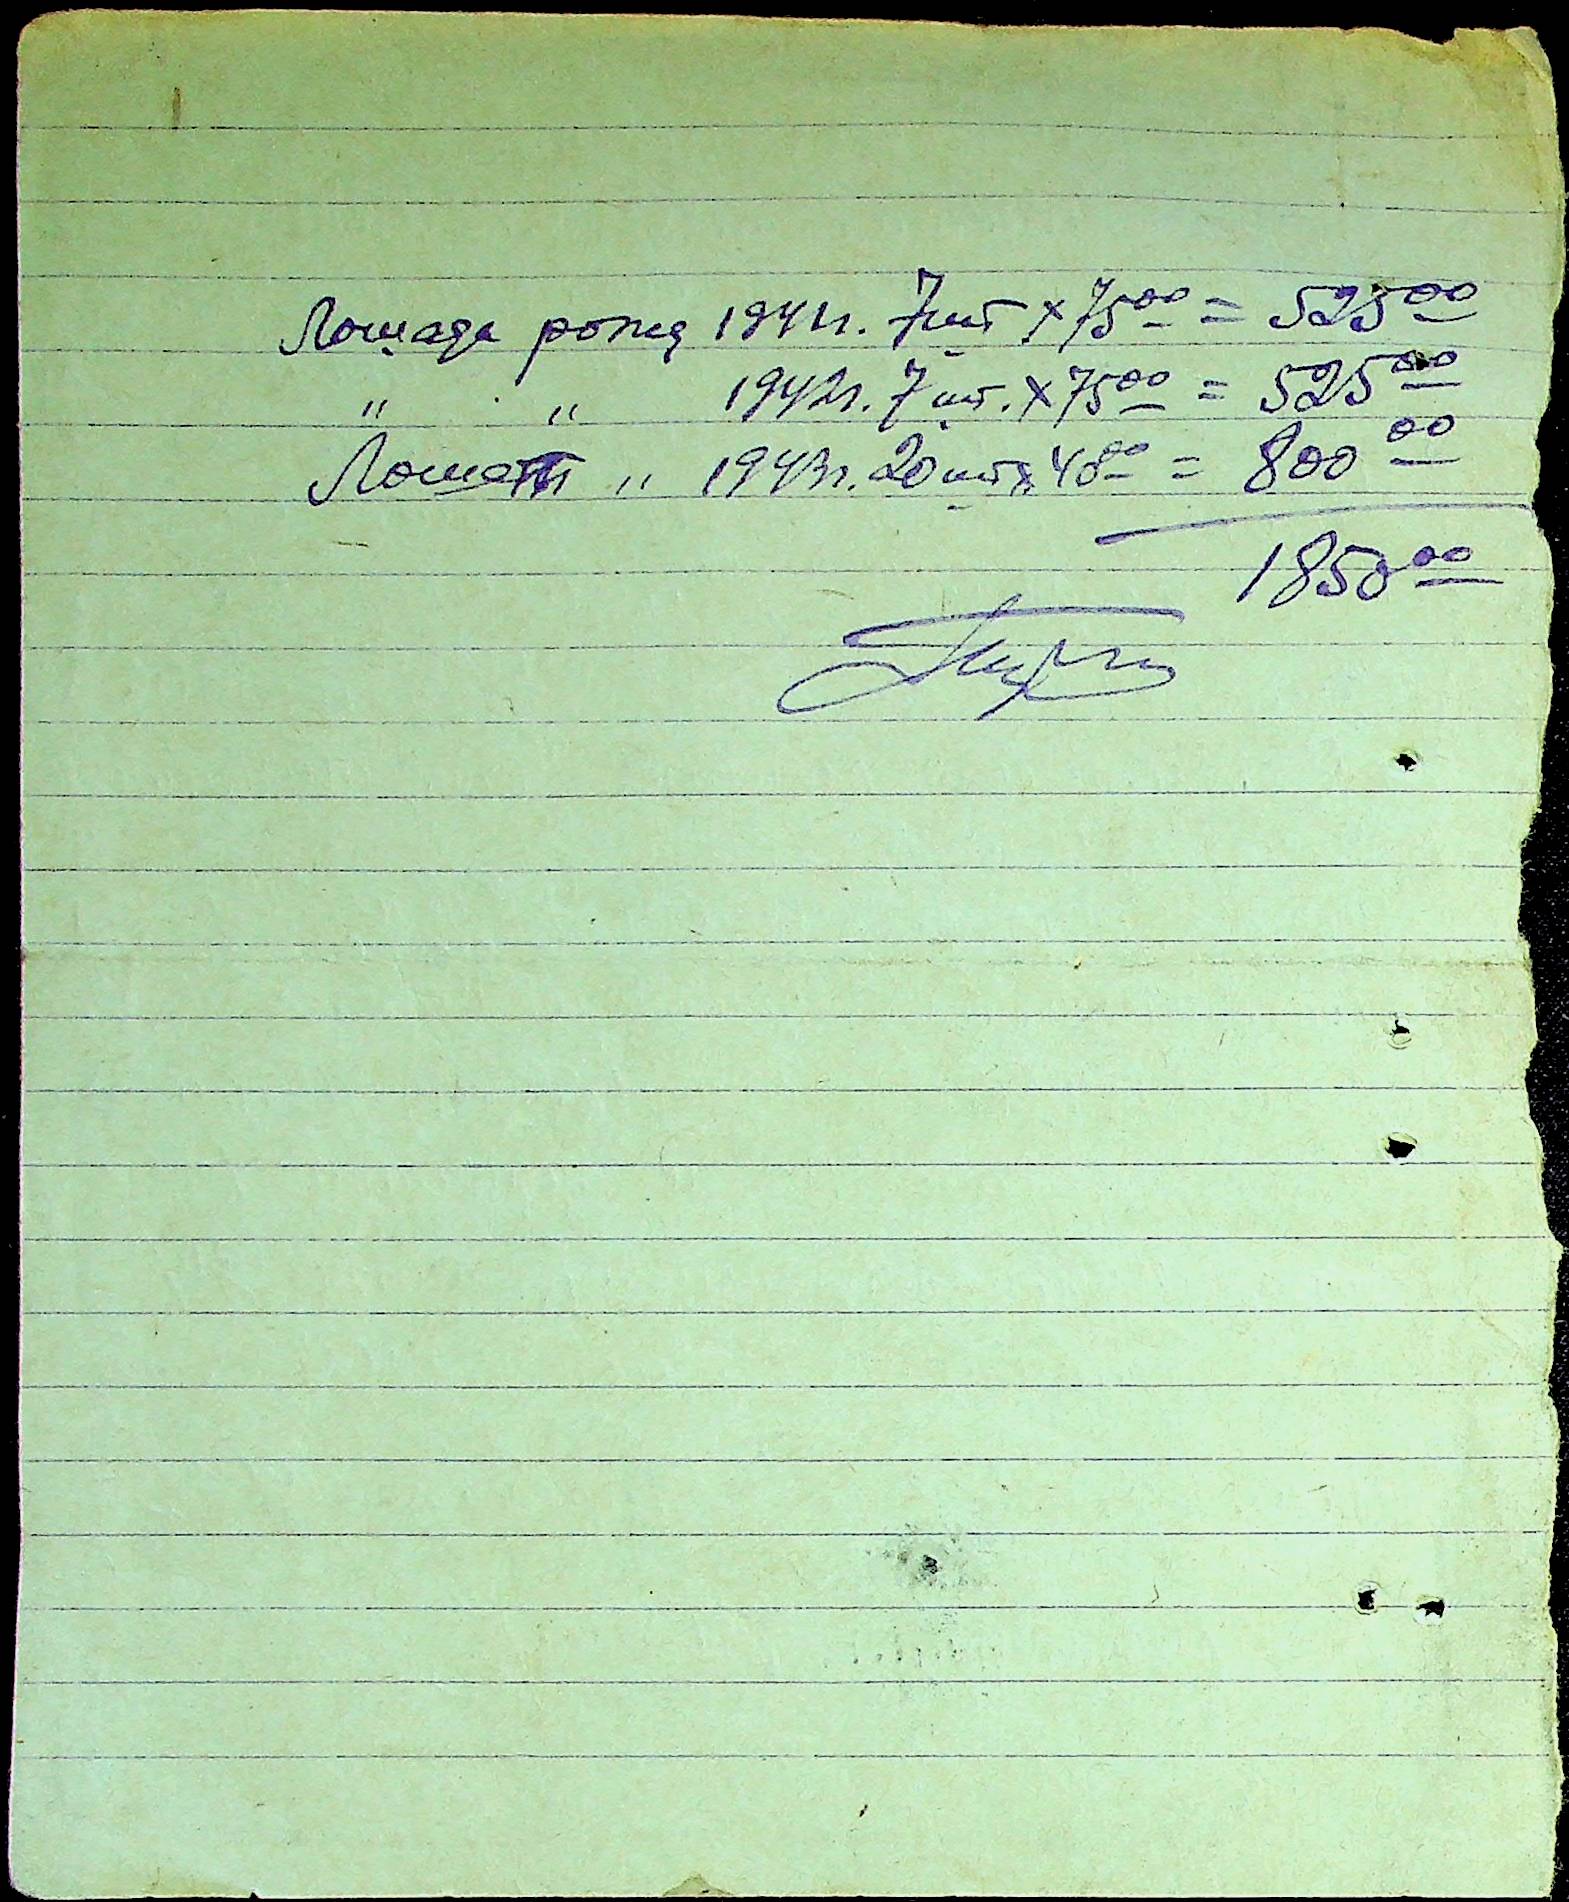 Лошади рожд 1941г. 7шт × 75 00 = 525 00
" " 1942г. 7 шт. × 75 00 = 525 00
" 1943г. 20 шт × 40 00 = 800 00
1850 00